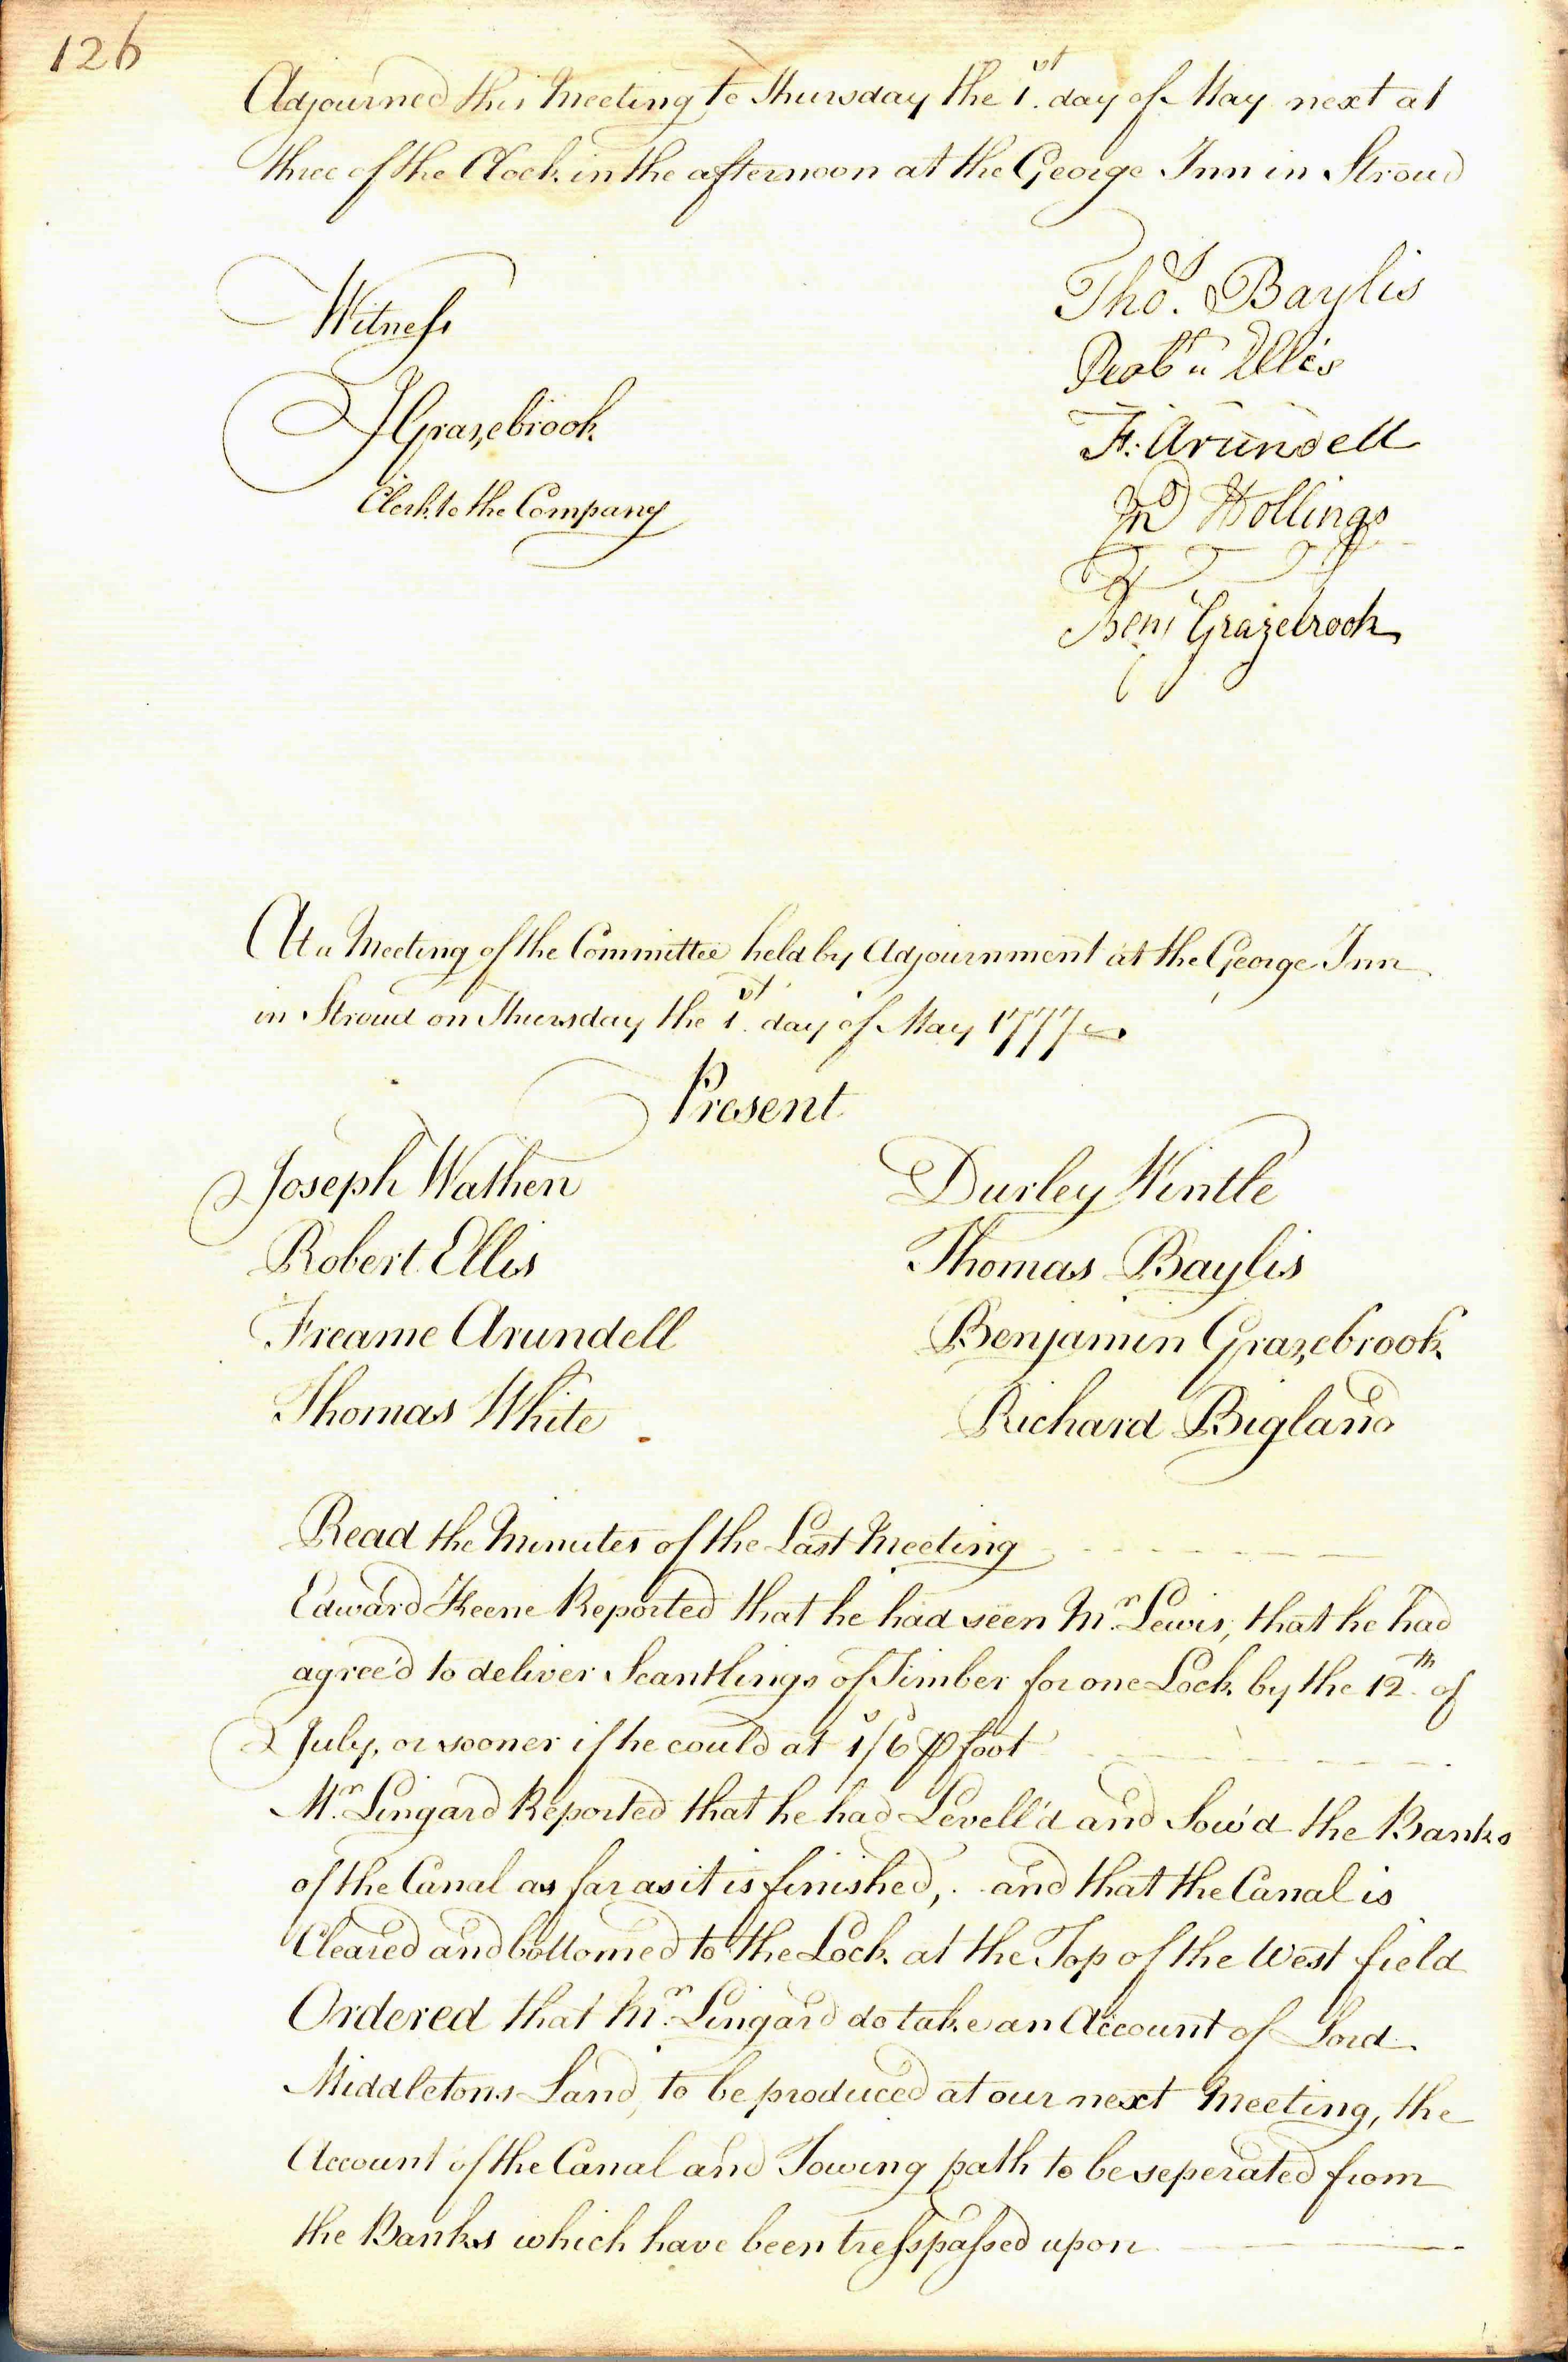 126
Adjourned this Meeting to Thursday the 1st. day of May next at
three of the Clock in the afternoon at the George Inn in Stroud
Witness
JGrazebrook
Clerk to the Company
Thos. Baylis
Robt Ellis
F: Arundell
Jno Hollings
Benj Grazebrook
At a Meeting of the Committee held by Adjournment at the George Inn
in Stroud on Thursday the 1st. day of May 1777
Present
Joseph Wathen
Durley Wintle
Robert Ellis
Thomas Baylis
Freame Arundell
Benjamin Grazebrook
Thomas White
Richard Bigland
Read the Minutes of the Last Meeting
Edward Keene Reported that he had seen Mr. Lewis, that he had
agree'd to deliver Scantlings of Timber for one Lock by the 12th. of
July, or sooner if he could at 1s/6d ⅌ foot
Mr. Lingard Reported that he had Levell'd and Sow'd the Banks
of the Canal as far as it is finished, and that the Canal is
Cleared and bottomed to the Lock at the Top of the West field
Ordered that Mr. Lingard do take an Account of Lord
Middletons Land, to be produced at our next Meeting, the
Account of the Canal and Towing path to be seperated from
the Banks which have been tresspassed upon